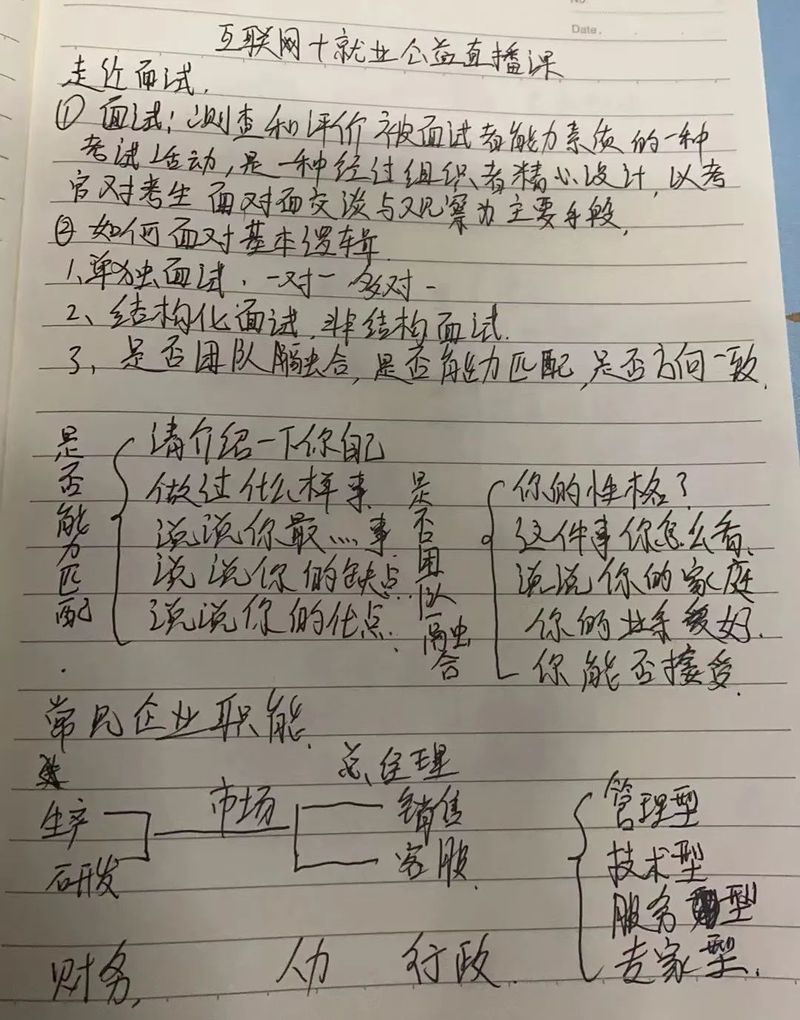 No
Date.
互联网+就业公益直播课
走近面试.
① 面试:测查和评价被面试者能力素质的一种
考试活动,是一种经过组织者精心设计,以考
官对考生面对面交谈与观察为主要手段,
② 如何面对基本逻辑
1、单独面试.一对一 多对一
2、结构化面试,非结构面试.
3、是否团队融合,是否能力匹配,是否方向一致.
是否能力匹配
请介绍一下你自己
做过什么样事
说说你最灬事.
说说你的缺点
说说你的优点.
是否团队融合
你的性格?
这件事你怎么看、
说说你的家庭
你的业余爱好.
你能否接受.
常见企业职能.
总经理
生产
研发
市场
销售
客服.
管理型
技术型
服务型
专家型.
财务, 人力 行政.